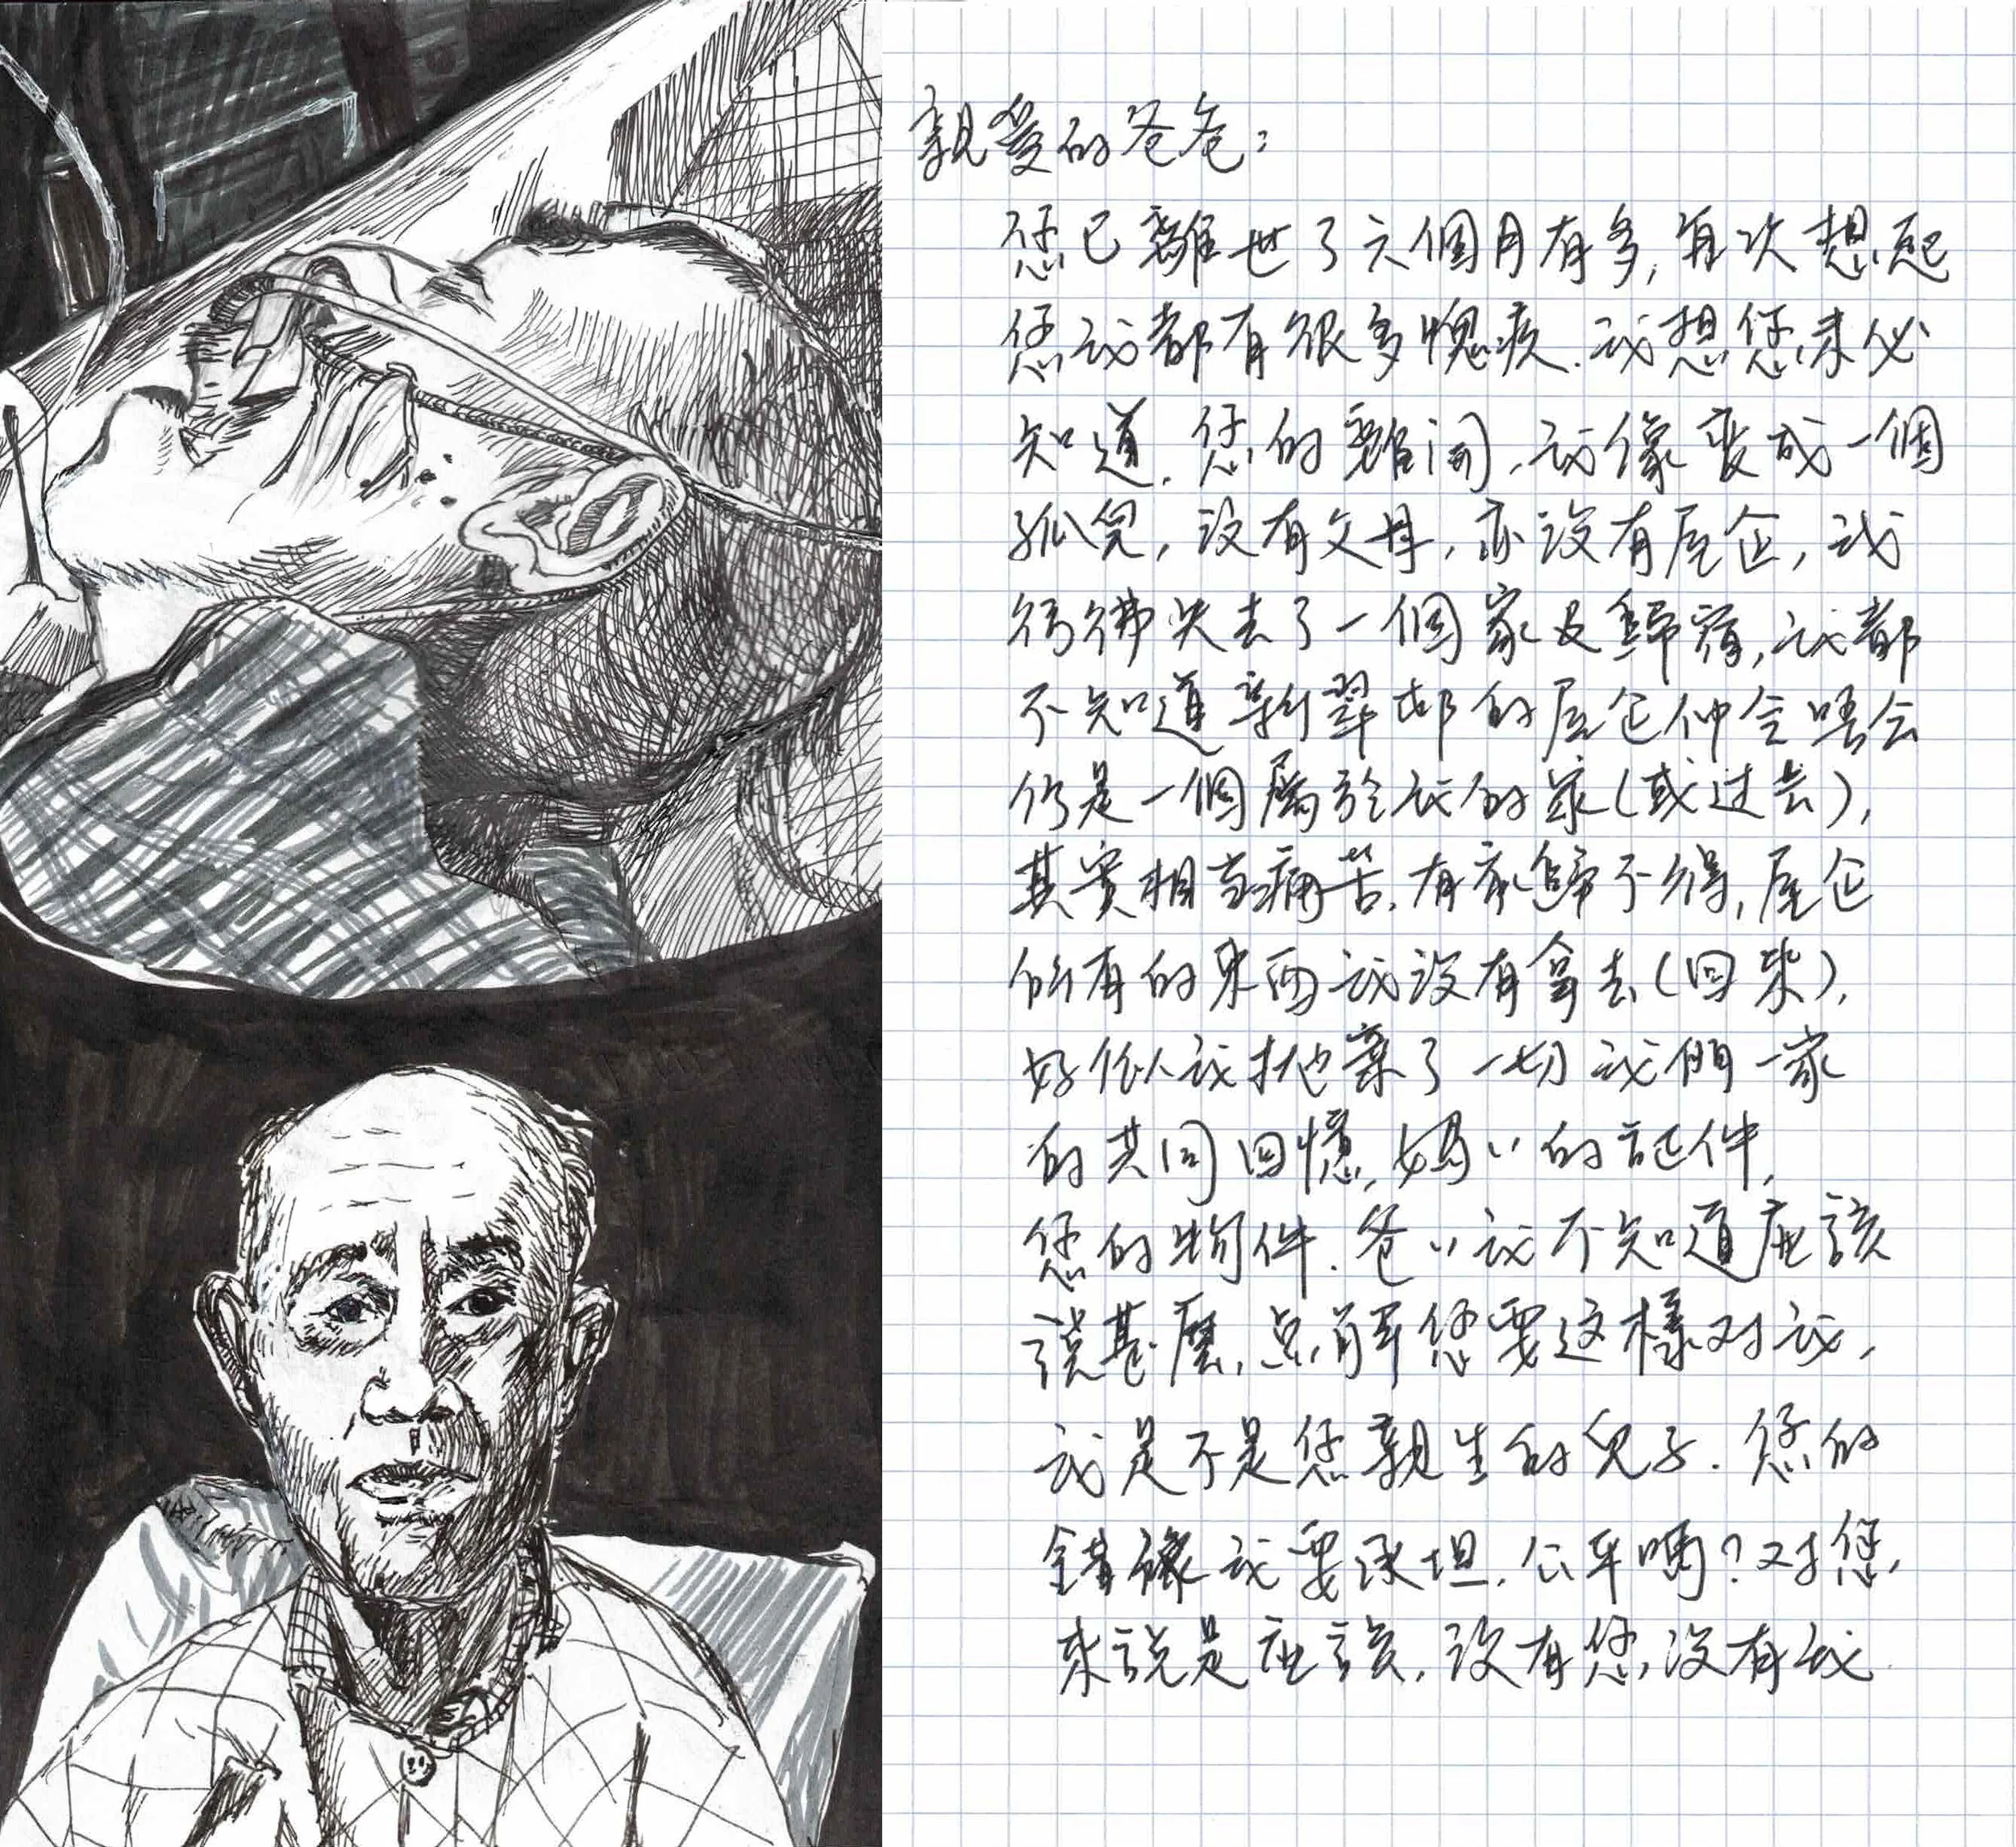 親愛的爸爸:
您已離世了六個月有多,每次想起
您我都有很多愧疚.我想您未必
知道,您的離開,我像變成一個
孤兒,沒有父母,亦沒有屋企,我
彷彿失去了一個家及歸宿,我都
不知道新翠邨的屋企仲会唔会
仍是一個屬於我的家(或过去),
其實相当痛苦,有家歸不得,屋企
所有的東西我沒有拿去(回來),
好似我抛棄了一切我們一家
的共同回憶,媽〃的証件,
您的物件.爸〃我不知道應該
説甚麼,点解您要这樣对我,
我是不是您親生的兒子.您的
錯讓我要承担,公平嗎?对您,
來説是應該,沒有您,沒有我